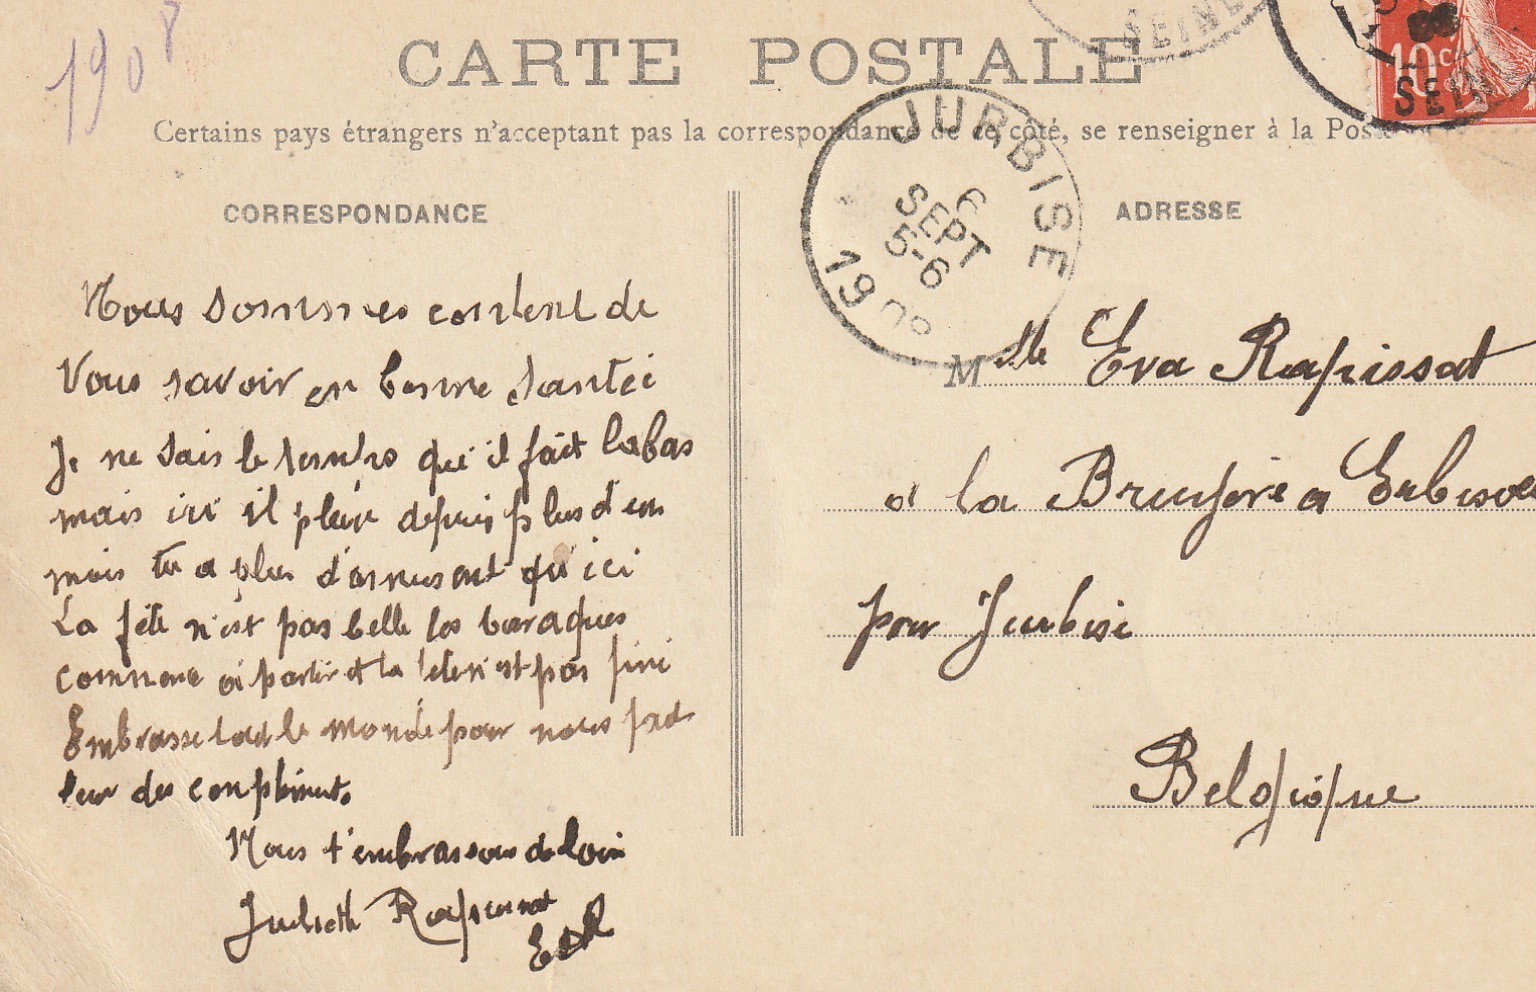 1908
CARTE POSTALE
Certains pays étrangers n'acceptant pas la correspondance de ce côté, se renseigner à la Poste
SEINE
10c
SEINE
JURBISE
6
SEPT
5-6
1908
CORRESPONDANCE
Nous sommes content de
Vous savoir en bonne santée
Je ne sais le temps qu'il fait labas
mais ici il pleu depuis plus d'un
mois tu a plus d'amusent qu'ici
La fête n'est pas belle les baraques
commence a partir et la fete n'est pas fini
Embrasse tout le monde pour nous fait
leur des compliments
Nous t'embrassons de loin
Julieth Rapissat
ADRESSE
Mlle Eva Rapissat
a la Bruyère a Erbisoeu
pour Jurbise
Belgique